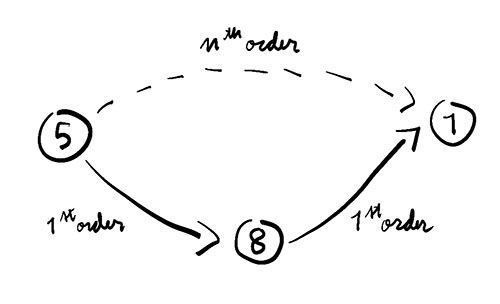 nth order
5
1
1st order
8
1st order